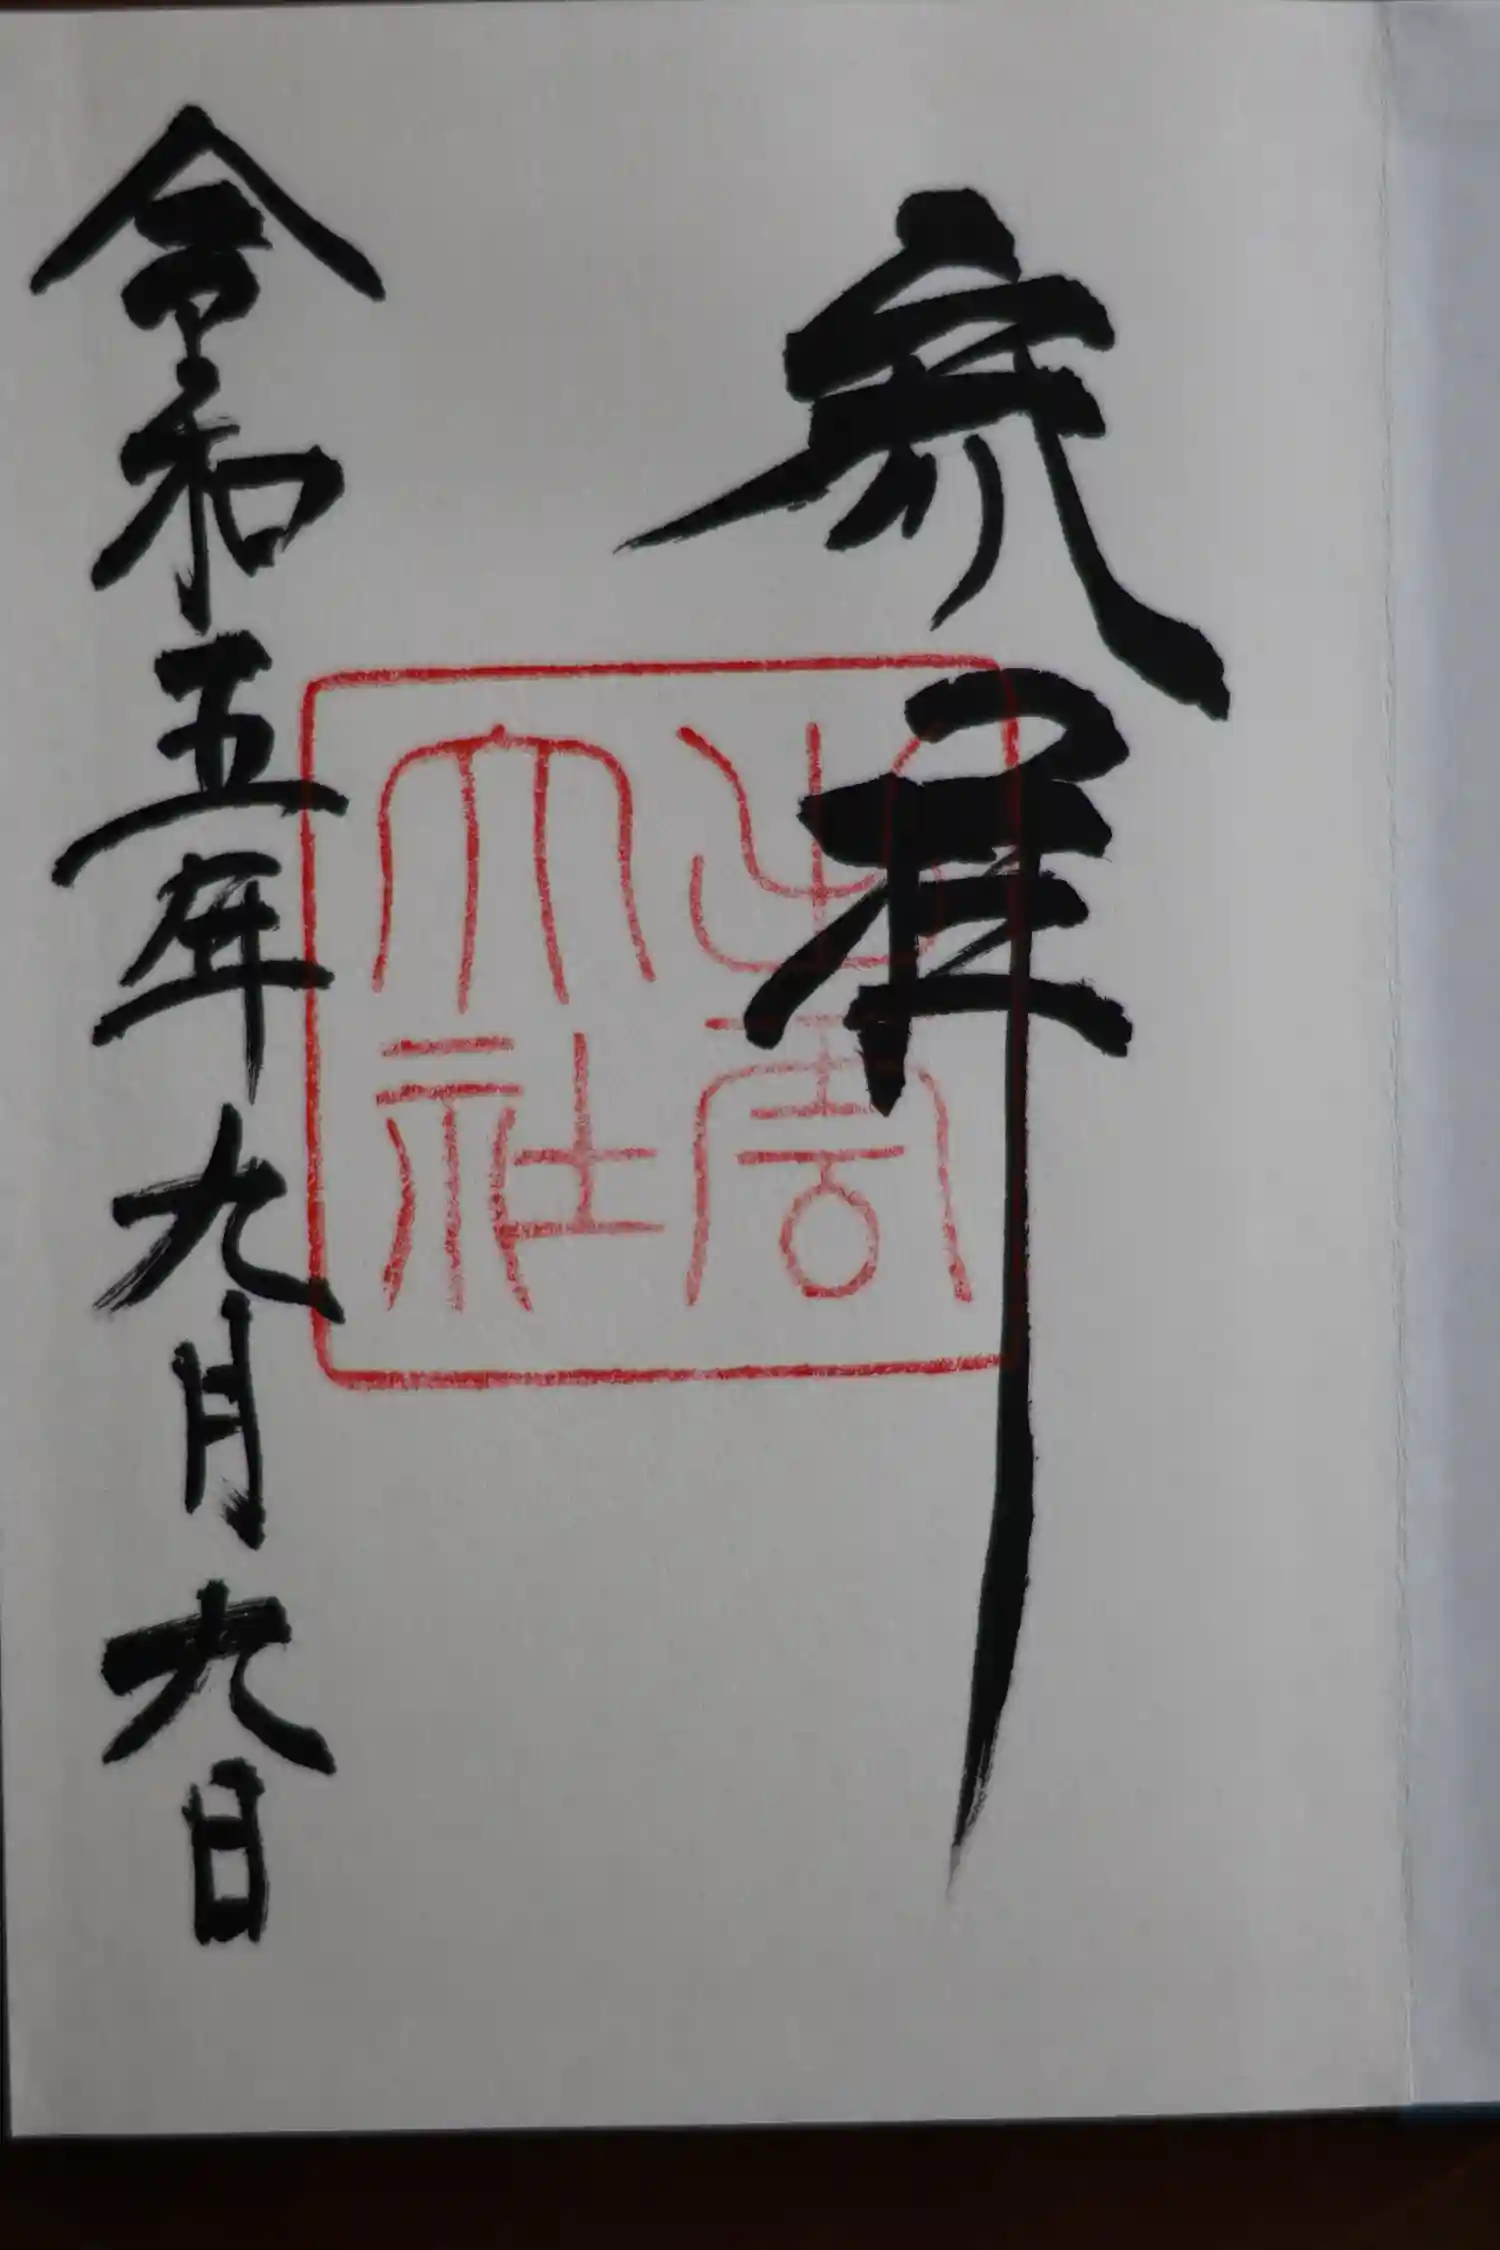 参拝
出雲
大社
令和五年九月九日